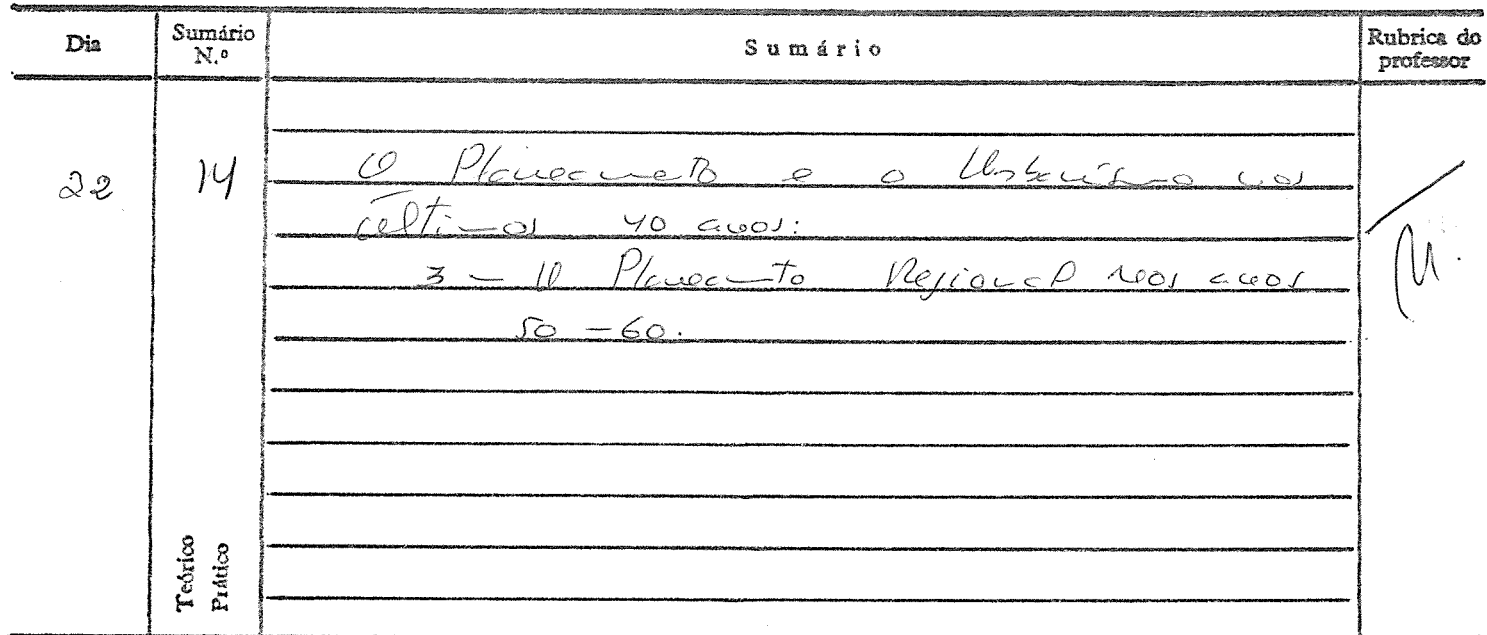 Dia Sumário N.º Sumário Rubrica do professor
22 14 O Planeamento e o Urbanismo nos
últimos 40 anos:
3 – O Planeamento Regional nos anos
50 – 60.
M.
Teórico
Prático